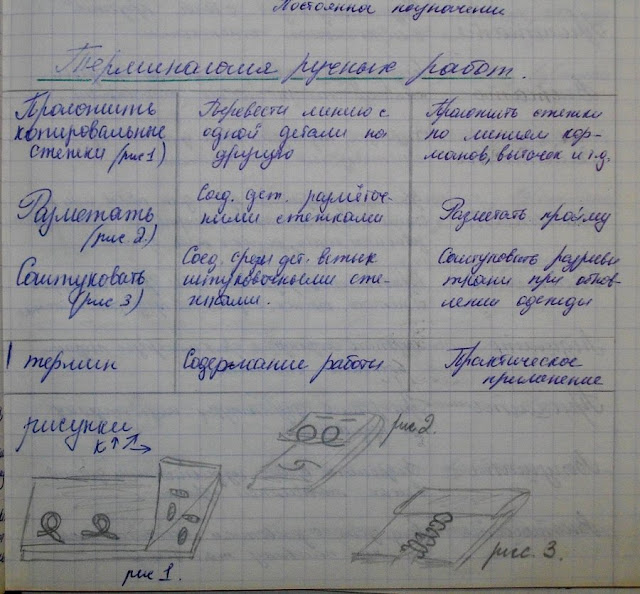 Постоянна
Терминалогия ручных работ.
Проложить
копировальные
стежки (рис 1)
Перевести линию с
одной детали на
другую
Проложить стежки
по линиям кар-
манов, выточек и т.д.
Разметать
(рис. 2.)
Соед. дет. размёточ-
ными стежками
Разметать пройму
Соштуковать
(рис 3)
Соед. срезы дет. встык
штуковочными сте-
жками.
Соштуковать разрывы
ткани при обнов-
лении одежды
термин
Содержание работы
Практическое
применение
рисунки
к
рис 2.
рис 1.
рис. 3.